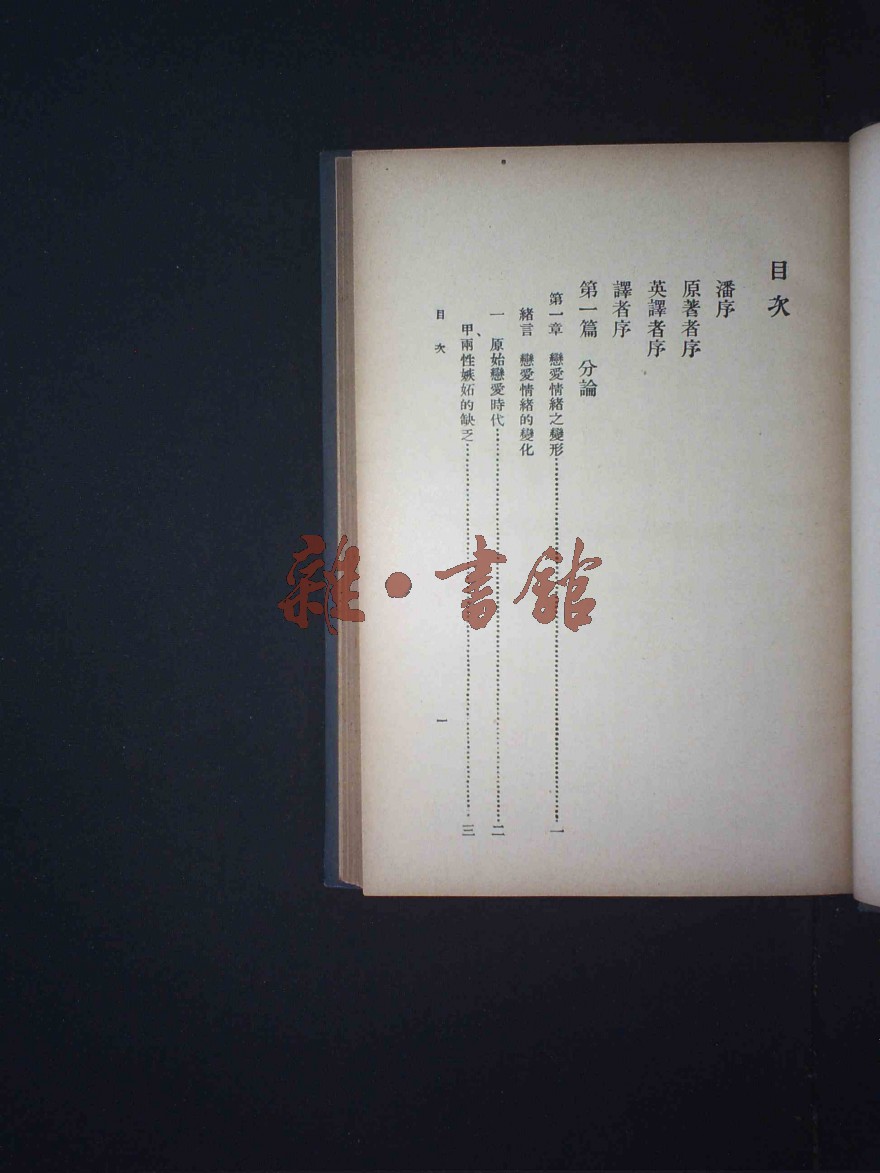 目次
潘序
原著者序
英譯者序
譯者序
第一篇 分論
第一章 戀愛情緒之變形……一
緒言 戀愛情緒的變化
一、原始戀愛時代……二
甲兩性嫉妬的缺乏……三
目次 一
雜·書館